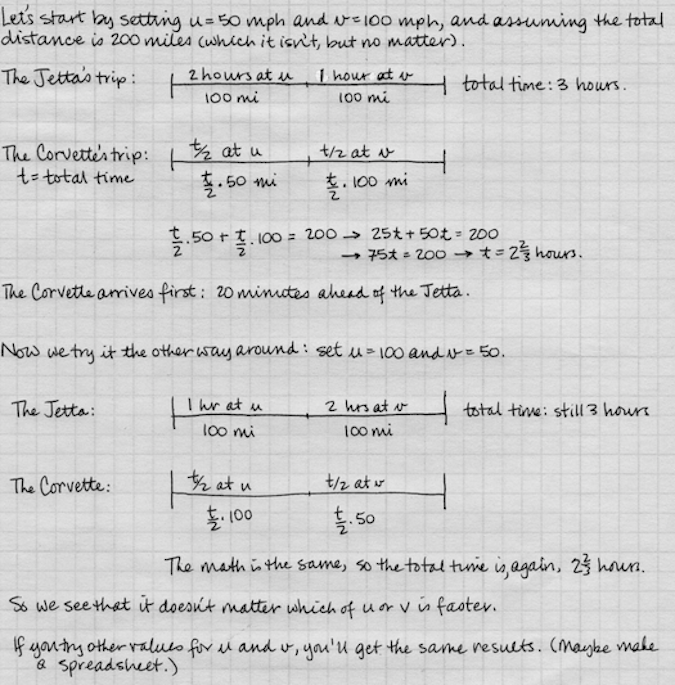 Let's start by setting u = 50 mph and v = 100 mph, and assuming the total
distance is 200 miles (which it isn't, but no matter).
The Jetta's trip: 2 hours at u 1 hour at v total time: 3 hours.
100 mi 100 mi
The Corvette's trip: t/2 at u t/2 at v
t = total time t/2 · 50 mi t/2 · 100 mi
t/2 · 50 + t/2 · 100 = 200 → 25t + 50t = 200
→ 75t = 200 → t = 2 2/3 hours.
The Corvette arrives first: 20 minutes ahead of the Jetta.
Now we try it the other way around: set u = 100 and v = 50.
The Jetta: 1 hr at u 2 hrs at v total time: still 3 hours
100 mi 100 mi
The Corvette: t/2 at u t/2 at v
t/2 · 100 t/2 · 50
The math is the same, so the total time is, again, 2 2/3 hours.
So we see that it doesn't matter which of u or v is faster.
If you try other values for u and v, you'll get the same results. (Maybe make
a spreadsheet.)